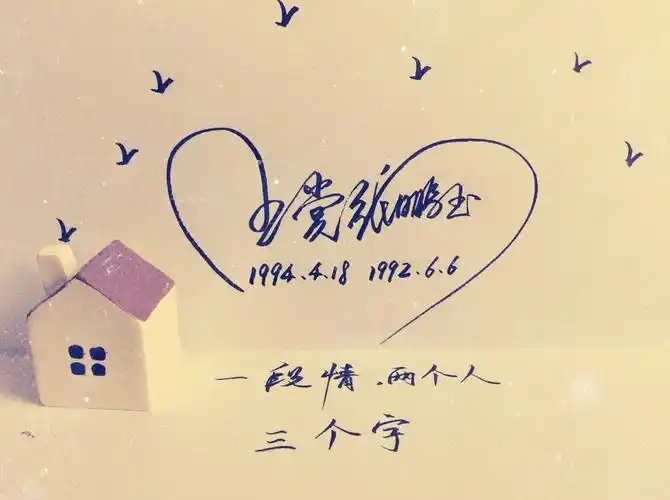 王党张鹏玉
1994.4.18 1992.6.6
一段情.两个人
三个字